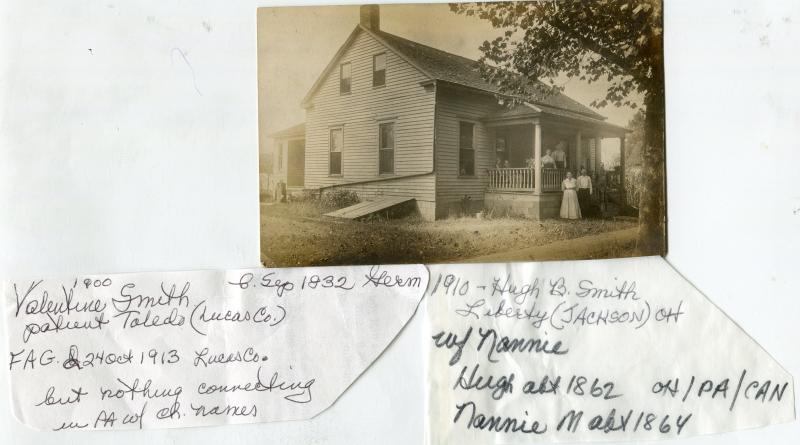 1900
Valentine Smith b. Sep 1832 Germ
patient Toledo (Lucas Co.)
FAG. d 24 Oct 1913 Lucas Co.
but nothing connecting
in PA w/ ch. names
1910 - Hugh B. Smith
Liberty (JACKSON) OH
w/ Nannie
Hugh abt 1862 OH/PA/CAN
Nannie M abt 1864